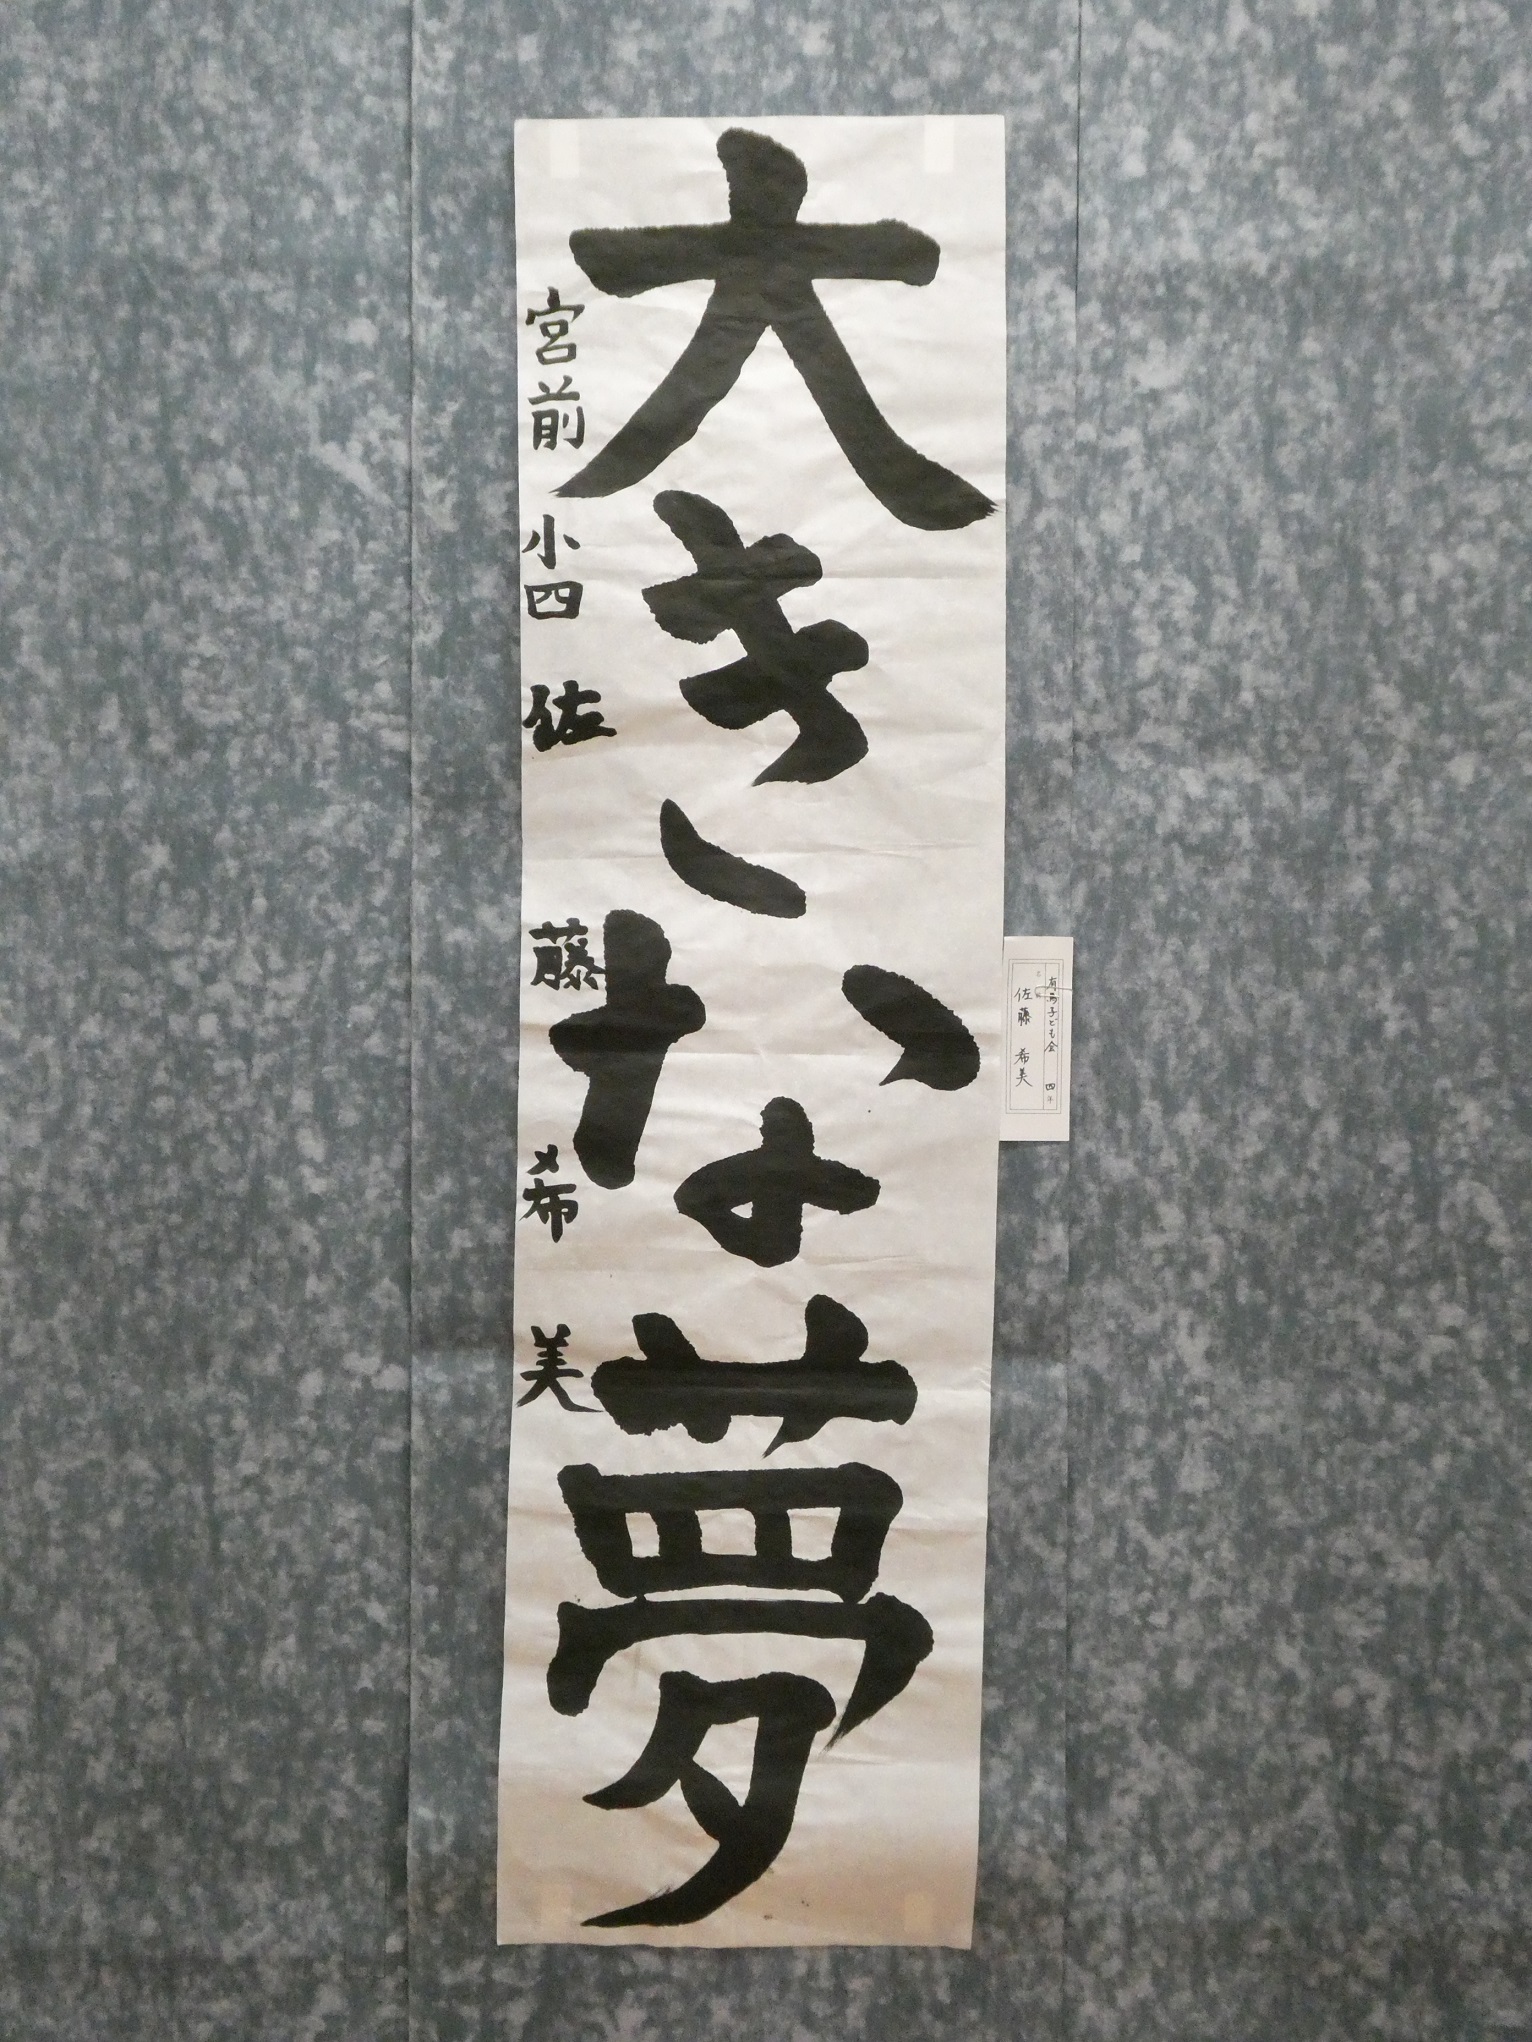 大きな夢
宮前小四 佐藤希美
子ども会 四年
佐藤 希美